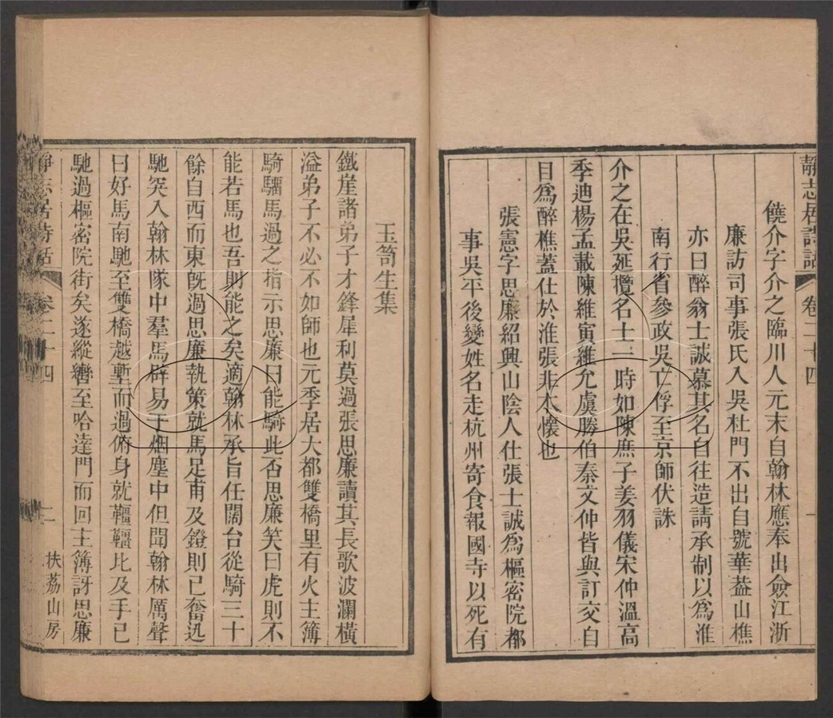 靜志居詩話
卷二十四
一
饒介字介之臨川人元末自翰林應奉出僉江浙
廉訪司事張氏入吳杜門不出自號華葢山樵
亦曰醉翁士誠慕其名自往造請承制以爲淮
南行省參政吳亡俘至京師伏誅
介之在吳延攬名士一時如陳庶子姜羽儀宋仲溫高
季迪楊孟載陳維寅維允虞勝伯秦文仲皆與訂交自
目爲醉樵蓋仕於淮張非本懷也
張憲字思廉紹興山陰人仕張士誠爲樞密院都
事吳平後變姓名走杭州寄食報國寺以死有
玉笥生集
鐵崖諸弟子才鋒犀利莫過張思廉讀其長歌波瀾橫
溢弟子不必不如師也元季居大都雙橋里有火主簿
騎驑馬過之指示思廉曰能騎此否思廉笑曰虎則不
能若馬也吾則能之矣適翰林承旨任闊台從騎三十
餘自西而東旣過思廉執策就馬足甫及鐙則已奮迅
馳突入翰林隊中羣馬辟易于烟塵中但聞翰林厲聲
曰好馬南馳至雙橋越塹而過俯身就韁韁比及手已
馳過樞密院街矣遂縱轡至哈達門而回主簿訝思廉
靜志居詩話
卷二十四
二
扶荔山房